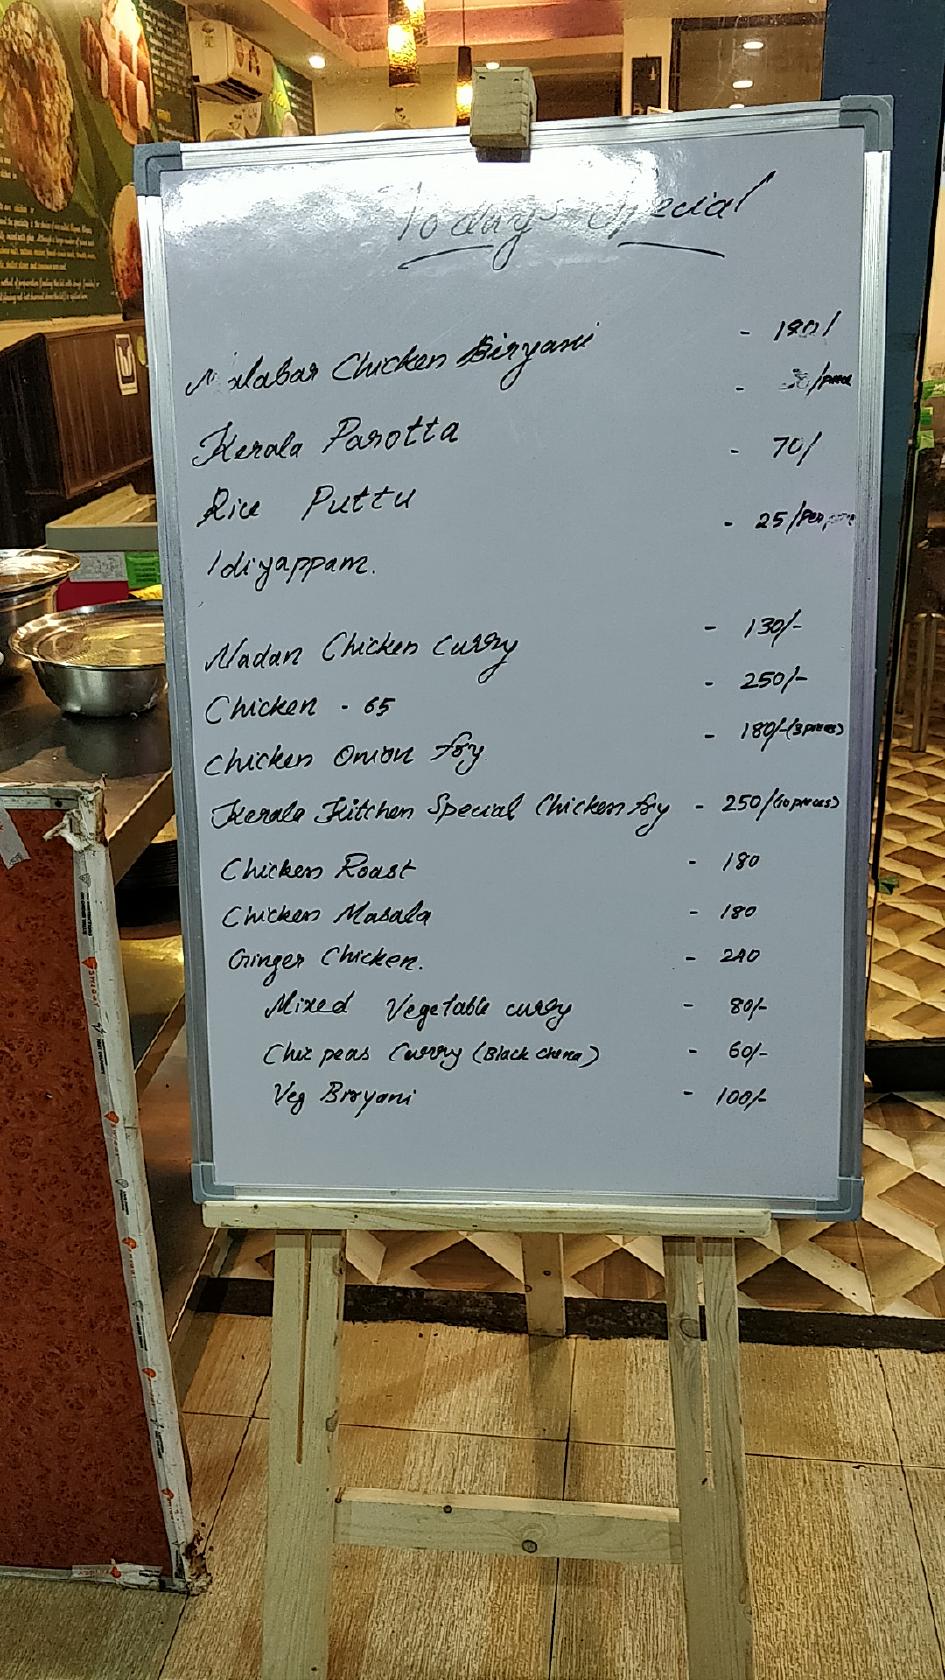 Today's Special
Malabar Chicken Biryani - 180/
Kerala Parotta - /piece
Rice Puttu - 70/
Idiyappam. - 25/
Nadan Chicken Curry - 130/-
Chicken - 65 - 250/-
Chicken Onion fry - 180/-(3 pieces)
Kerala Kitchen Special Chicken fry - 250/(10 pieces)
Chicken Roast - 180
Chicken Masala - 180
Ginger Chicken. - 240
Mixed Vegetable curry - 80/-
Chic peas Curry (Black chena) - 60/-
Veg Biryani - 100/-